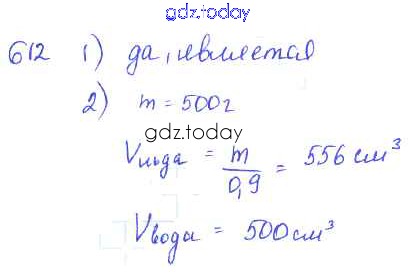 gdz.today
612 1) да, является
2) m = 500г
gdz.today
Vльда = m/0,9 = 556 см³
Vводы = 500 см³